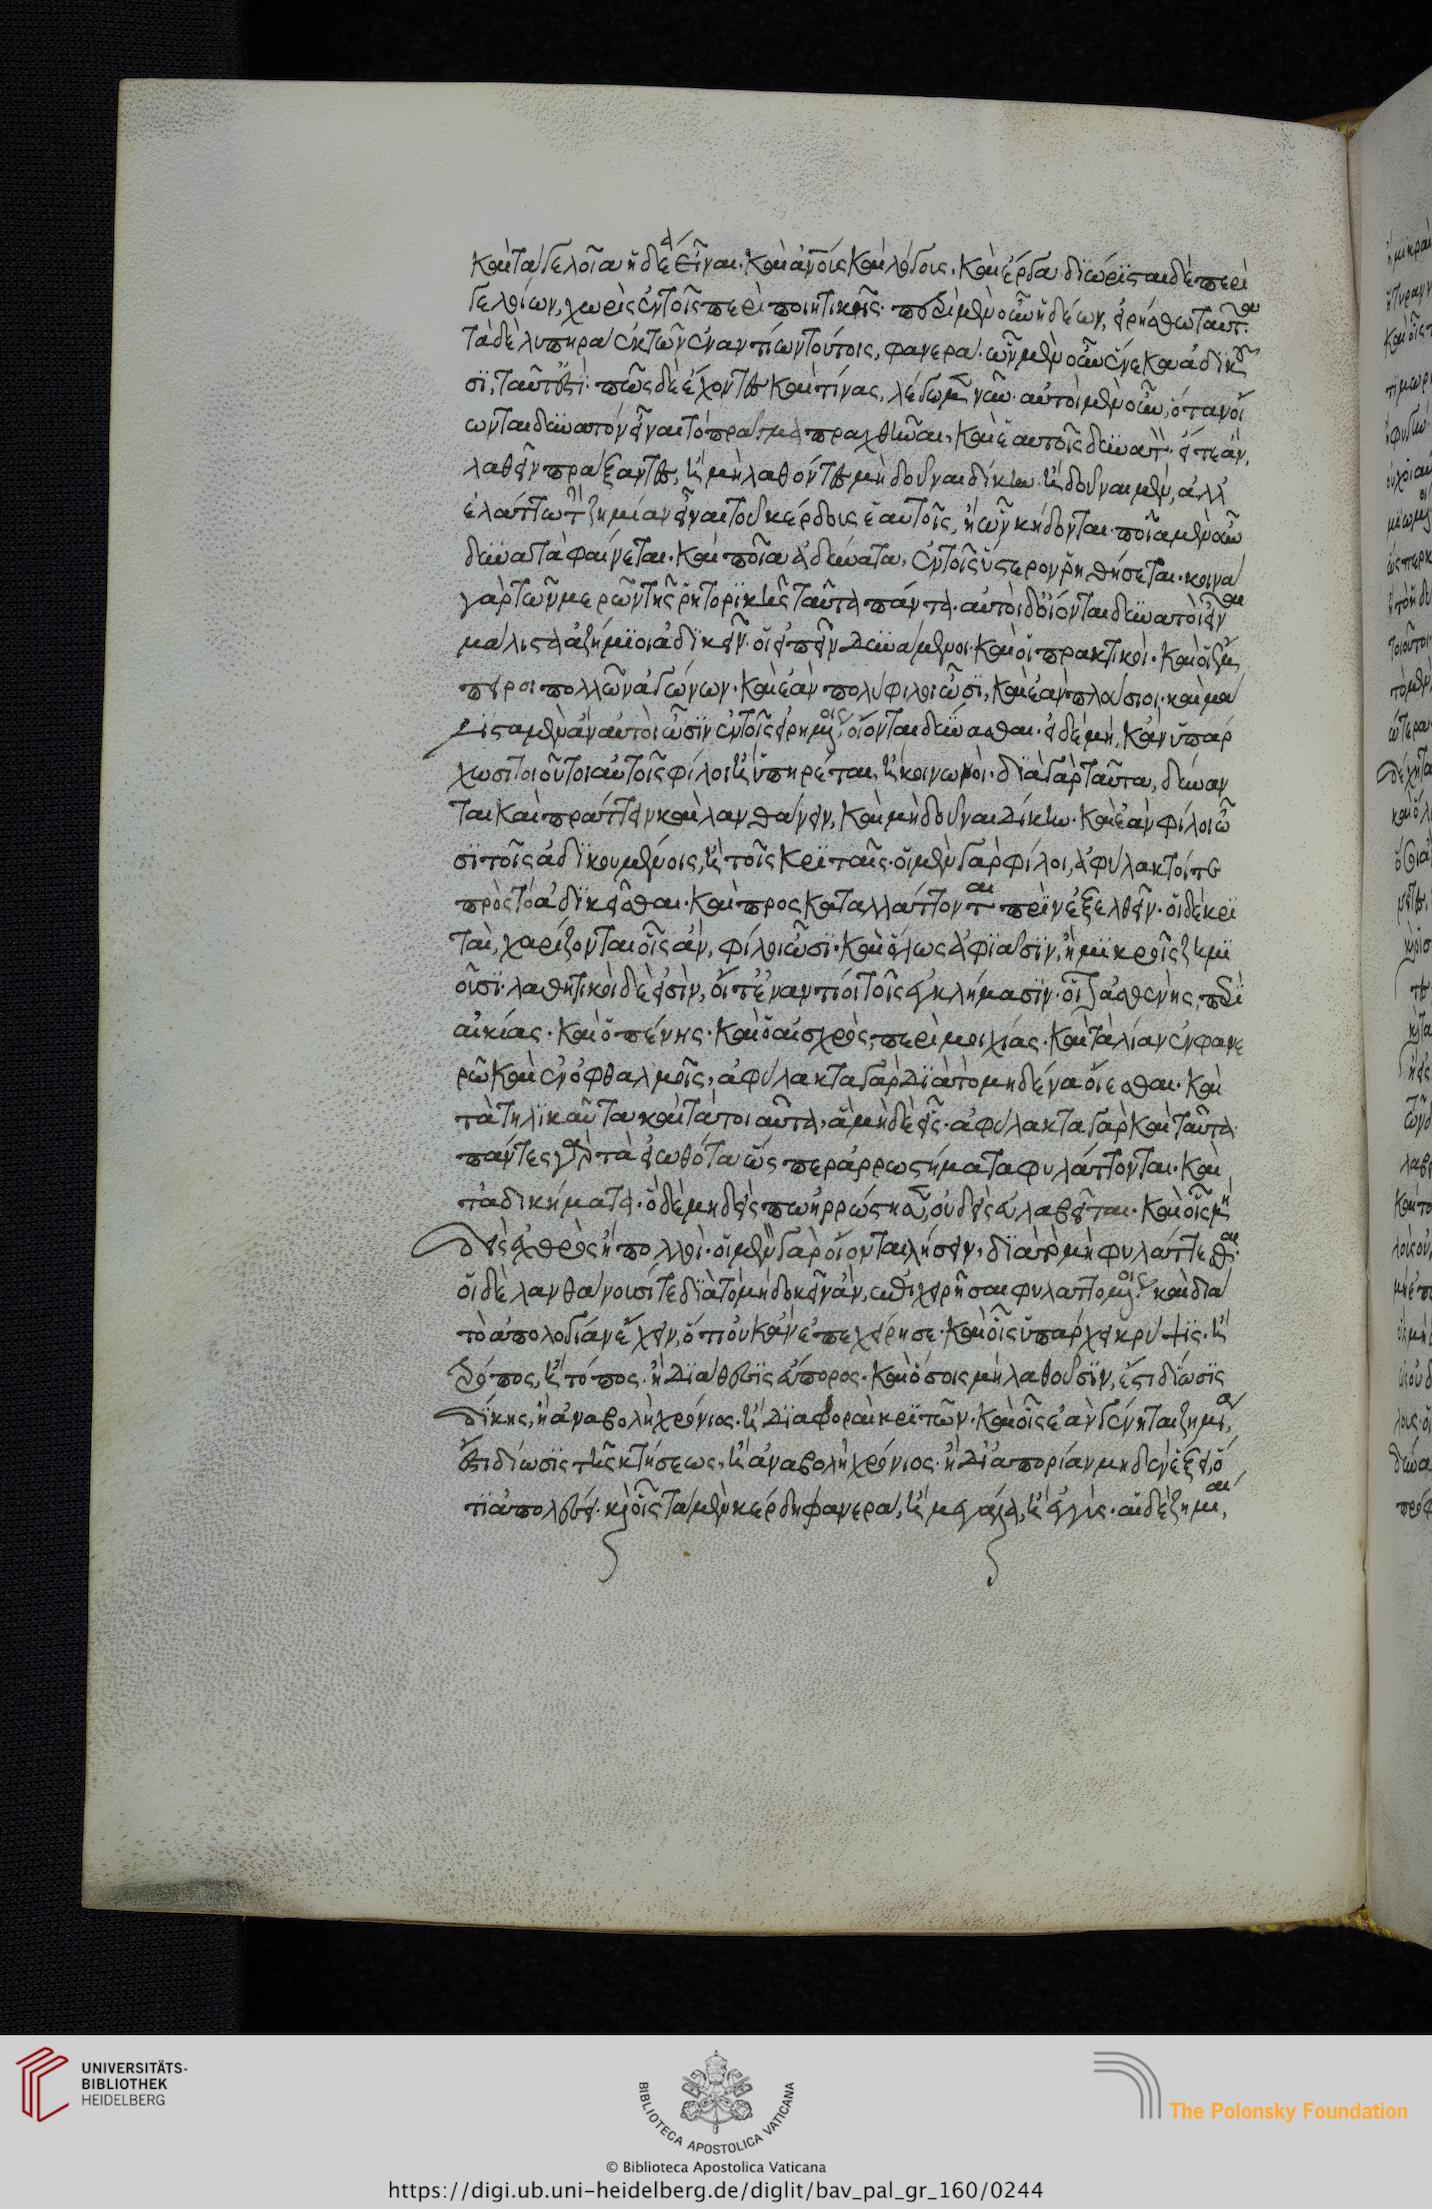 καὶ τὰ γελοῖα ἡδέα εἶναι. καὶ ἀνους καὶ λόγους. καὶ ἔργα. διώρισται δὲ περὶ
γελοίων, χωρὶς ἐν τοῖς περὶ ποιητικῆς. περὶ μὲν οὖν ἡδέων, εἰρήσθω ταῦτα.
τὰ δὲ λυπηρὰ ἐκ τῶν ἐναντίων τούτοις, φανερά. ὧν μὲν οὖν ἕνεκα ἀδικοῦ
σι, ταῦτ' ἐστί. πῶς δὲ ἔχοντες καὶ τίνας, λέγωμεν νῦν. αὐτοὶ μὲν οὖν, ὅταν οἴ
ωνται δυνατὸν εἶναι τὸ πρᾶγμα πραχθῆναι, καὶ ἑαυτοῖς δυνατόν. εἴτε ἂν,
λαθεῖν πράξαντες, ἢ μὴ λαθόντες μὴ δοῦναι δίκην. ἢ δοῦναι μὲν, ἀλλ'
ἐλάττω τὴν ζημίαν εἶναι τοῦ κέρδους ἑαυτοῖς, ἢ ὧν κήδονται. ποῖα μὲν οὖν
δυνατὰ φαίνεται. καὶ ποῖα ἀδύνατα, ἐν τοῖς ὕστερον ῥηθήσεται. κοινὰ
γὰρ τῶν μερῶν τῆς ῥητορικῆς ταῦτα πάντα. αὐτοὶ δ' οἴονται δυνατοὶ εἶναι
μάλιστα ἀζήμιοι ἀδικεῖν. οἱ εἰπεῖν δυνάμενοι. καὶ οἱ πρακτικοί. καὶ οἱ ἔμ
πειροι πολλῶν ἀγώνων. καὶ ἐὰν πολύφιλοι ὦσι, καὶ ἐὰν πλούσιοι. καὶ μά
λιστα μὲν ἂν αὐτοὶ ὦσιν ἐν τοῖς εἰρημένοις, οἴονται δύνασθαι. εἰ δὲ μή, κἂν ὑπάρ
χωσι τοιοῦτοι αὐτοῖς φίλοι ἢ ὑπηρέται, ἢ κοινωνοί. διὰ γὰρ ταῦτα, δύναν
ται καὶ πράττειν καὶ λανθάνειν, καὶ μὴ δοῦναι δίκην. καὶ ἐὰν φίλοι ὦ
σι τοῖς ἀδικουμένοις, ἢ τοῖς κριταῖς. οἱ μὲν γὰρ φίλοι, ἀφύλακτοί τε
πρὸς τὸ ἀδικεῖσθαι. καὶ προσκαταλλάττονται πρὶν ἐξελθεῖν. οἱ δὲ κρι
ταὶ, χαρίζονται οἷς ἂν, φίλοι ὦσι. καὶ ὅλως ἀφιᾶσιν, ἢ μικροῖς ζημι
οῦσι. λαθητικοὶ δὲ εἰσὶν, οἵ τ' ἐναντίοι τοῖς ἐγκλήμασιν. οἷον ἀσθενὴς, περὶ
αἰκίας. καὶ ὁ πένης. καὶ ὁ αἰσχρὸς, περὶ μοιχίας. καὶ τὰ λίαν ἐν φανε
ρῷ καὶ ἐν ὀφθαλμοῖς, ἀφύλακτα γὰρ διὰ τὸ μηδένα οἴεσθαι. καὶ
τὰ τηλικαῦτα καὶ τὰ τοιαῦτα, ἃ μηδὲ εἷς. ἀφύλακτα γὰρ καὶ ταῦτα
πάντες γὰρ τὰ εἰωθότα ὥσπερ ἀρρωστήματα φυλάττονται. καὶ
τἀδικήματα. ὃ δὲ μηδεὶς πω ἠρρώστηκεν, οὐδεὶς εὐλαβεῖται. καὶ οἷς μη
δεὶς ἐχθρὸς ἢ πολλοί. οἱ μὲν γὰρ οἴονται λήσειν, διὰ τὸ μὴ φυλάττεσθαι.
οἱ δὲ λανθάνουσί τε διὰ τὸ μὴ δοκεῖν ἂν, ἐπιχειρῆσαι φυλαττομένοις. καὶ διὰ
τὸ ἀπολογίαν ἔχειν, ὅτι οὐκ ἂν ἐπεχείρησε. καὶ οἷς ὑπάρχει κρύψις. ἢ
τρόπος, ἢ τόπος. ἢ διάθεσις εὔπορος. καὶ ὅσοις μὴ λαθοῦσιν, ἔστι δίωσις
δίκης, ἢ ἀναβολὴ χρόνιος. ἢ διαφθοραὶ κριτῶν. καὶ οἷς ἐὰν γένηται ζημία,
ἔστι δίωσις τῆς κτήσεως, ἢ ἀναβολὴ χρόνιος. ἢ δι' ἀπορίαν μηδὲν ἕξει, ὅ
τι ἀπολέσει. καὶ οἷς τὰ μὲν κέρδη φανερὰ, ἢ μεγάλα, ἢ ἐγγύς. αἱ δὲ ζημίαι,
UNIVERSITÄTS-
BIBLIOTHEK
HEIDELBERG
BIBLIOTECA APOSTOLICA VATICANA
© Biblioteca Apostolica Vaticana
The Polonsky Foundation
https://digi.ub.uni-heidelberg.de/diglit/bav_pal_gr_160/0244